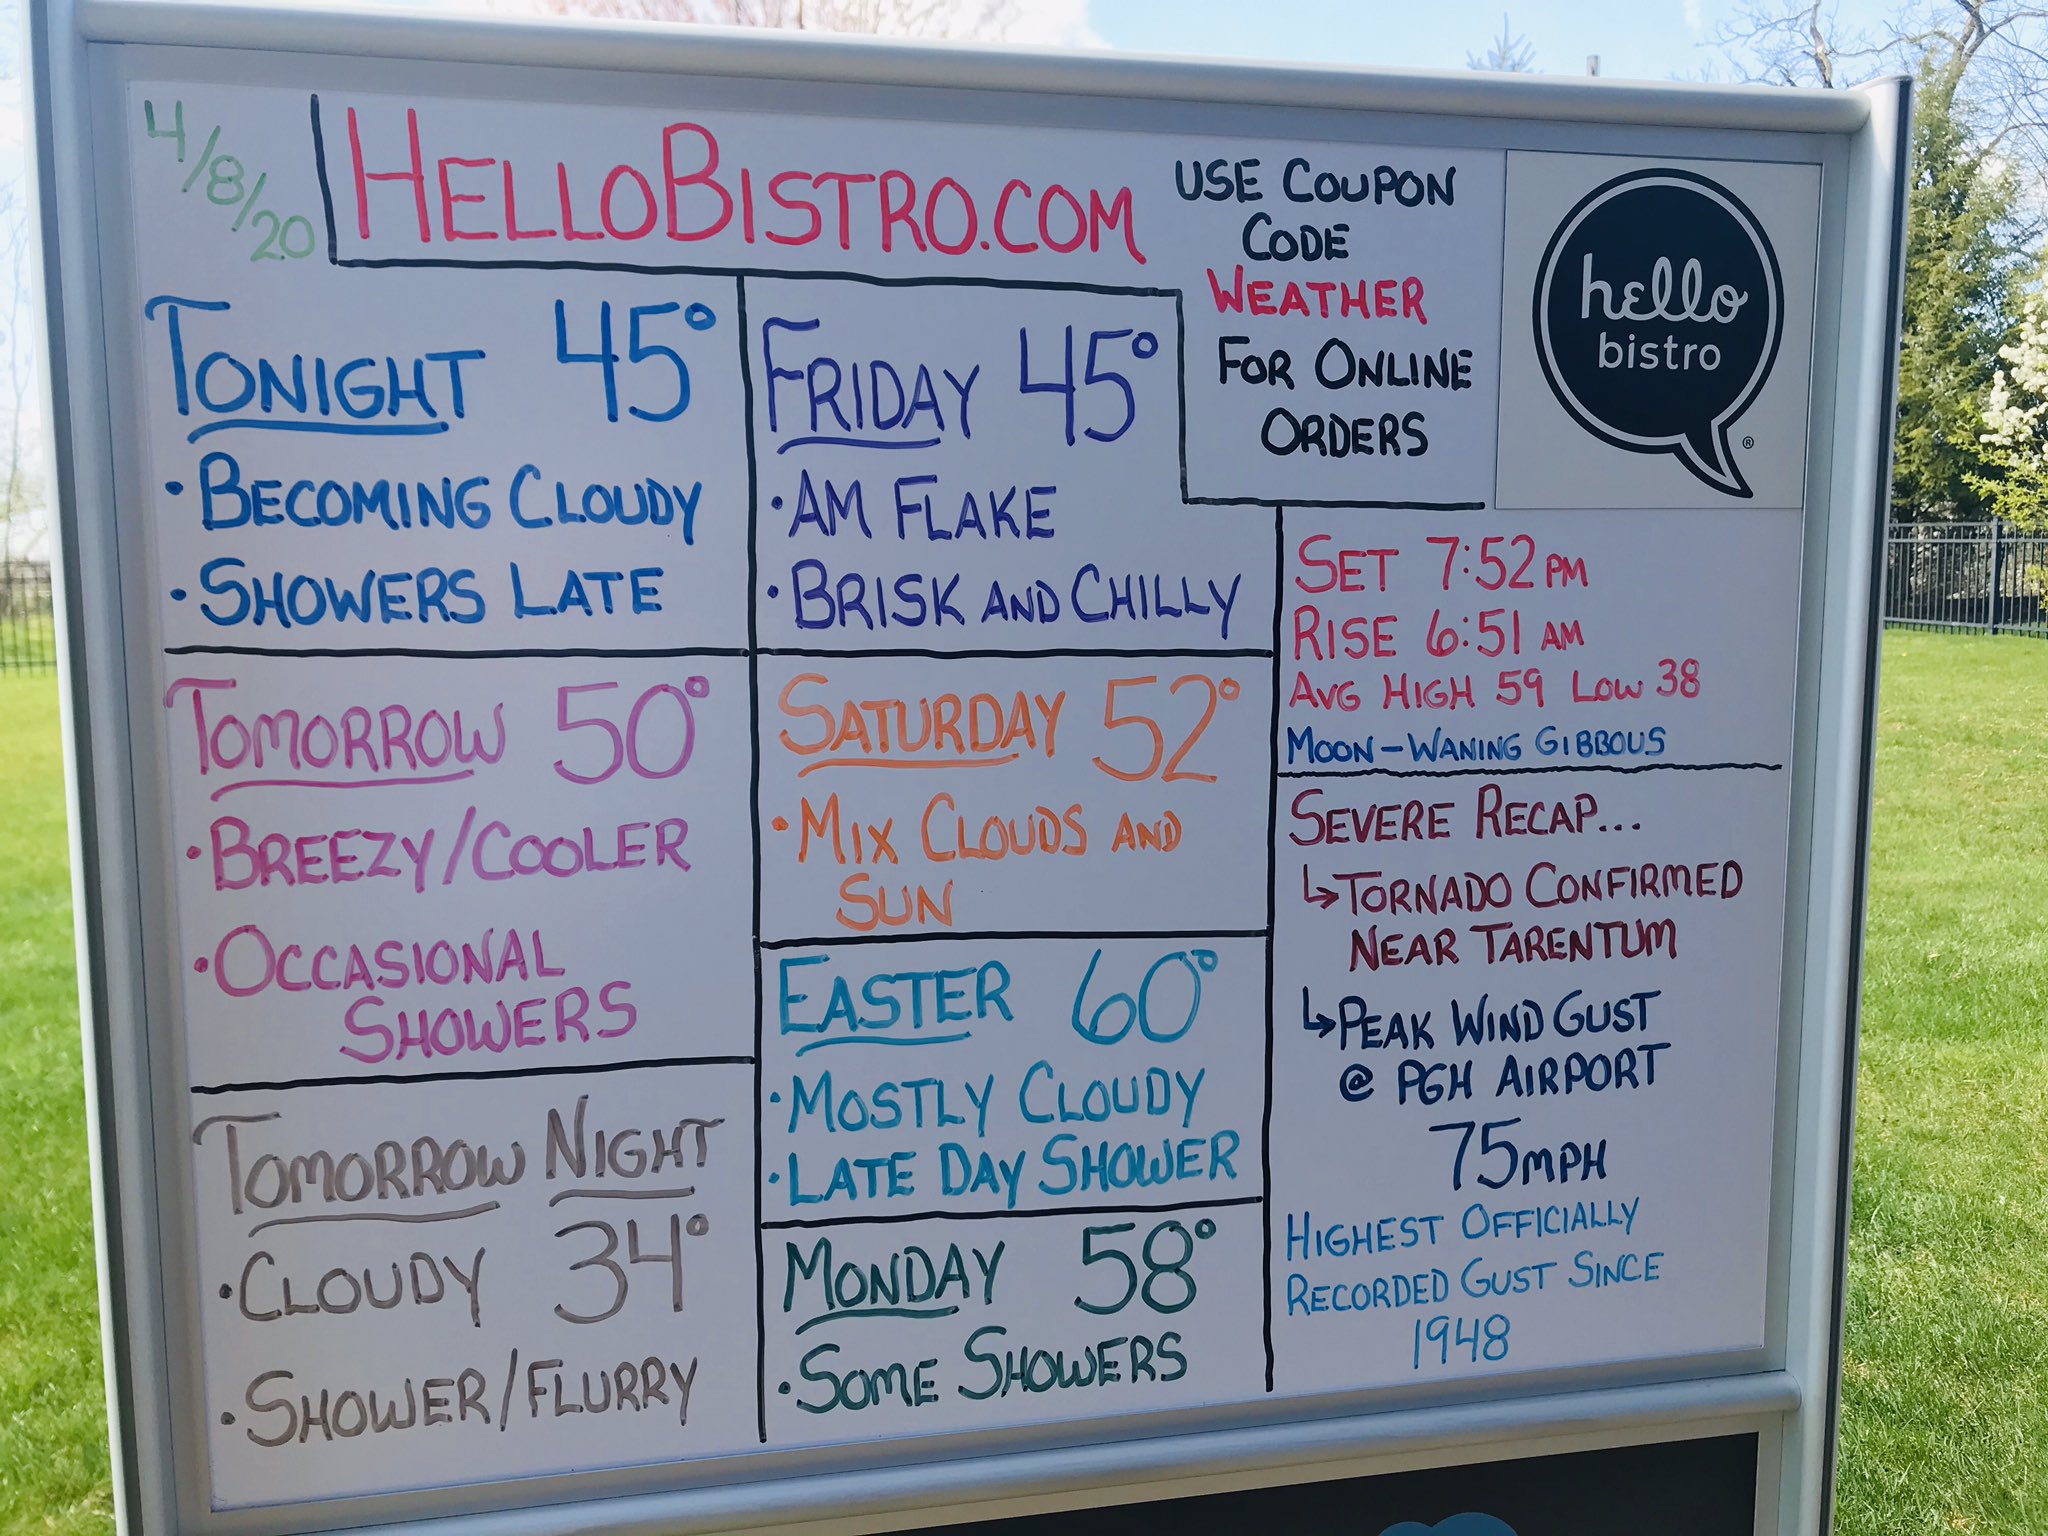 4/8/20
HELLOBISTRO.COM
USE COUPON
CODE
WEATHER
FOR ONLINE
ORDERS
hello
bistro
®
TONIGHT 45°
• BECOMING CLOUDY
• SHOWERS LATE
TOMORROW 50°
• BREEZY/COOLER
• OCCASIONAL
SHOWERS
TOMORROW NIGHT
• CLOUDY 34°
• SHOWER/FLURRY
FRIDAY 45°
• AM FLAKE
• BRISK AND CHILLY
SATURDAY 52°
• MIX CLOUDS AND
SUN
EASTER 60°
• MOSTLY CLOUDY
• LATE DAY SHOWER
MONDAY 58°
• SOME SHOWERS
SET 7:52 PM
RISE 6:51 AM
AVG HIGH 59 LOW 38
MOON - WANING GIBBOUS
SEVERE RECAP...
↳ TORNADO CONFIRMED
NEAR TARENTUM
↳ PEAK WIND GUST
@ PGH AIRPORT
75MPH
HIGHEST OFFICIALLY
RECORDED GUST SINCE
1948